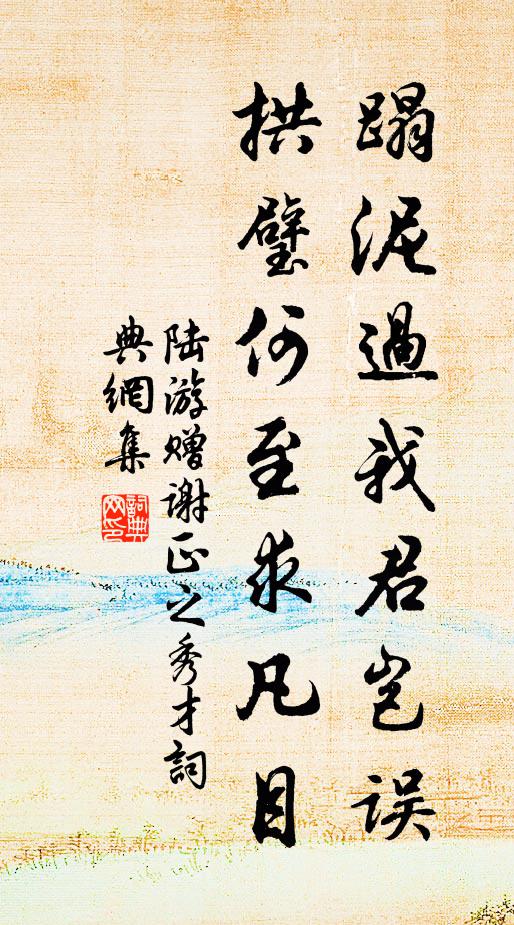 蹋泥過我君岂误
拱璧何至求凡目
陆游赠谢正之秀才詞
典網集
詞典
网印